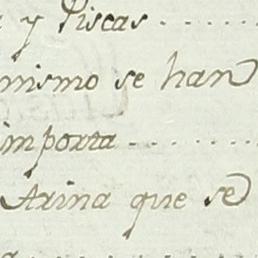 y Piscas
mismo se han
importa
Arina que se